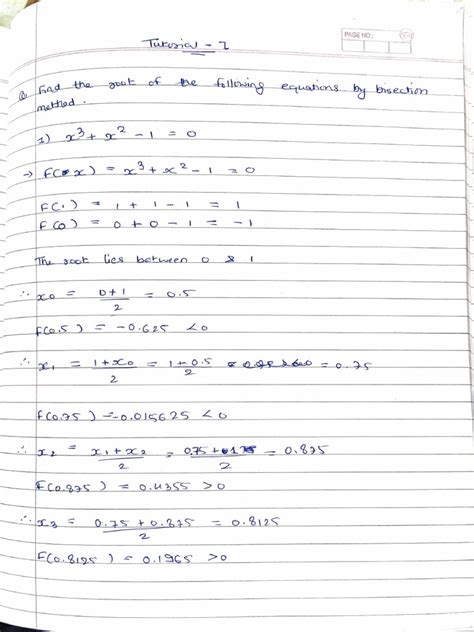 PAGE NO.:
Tutorial - 1
Q Find the root of the following equations by bisection
method.
1) x³ + x² - 1 = 0
→ F(x) = x³ + x² - 1 = 0
F(1) = 1 + 1 - 1 = 1
F(0) = 0 + 0 - 1 = -1
The root lies between 0 & 1
∴ x₀ = 0+1/2 = 0.5
F(0.5) = -0.625 <0
∴ x₁ = 1+x₀/2 = 1+0.5/2 = 0.75
F(0.75) = -0.015625 <0
∴ x₂ = x₁+x₂/2 = 0.75+1/2 = 0.875
F(0.875) = 0.4355 >0
∴ x₃ = 0.75 + 0.875/2 = 0.8125
F(0.8125) = 0.1965 >0